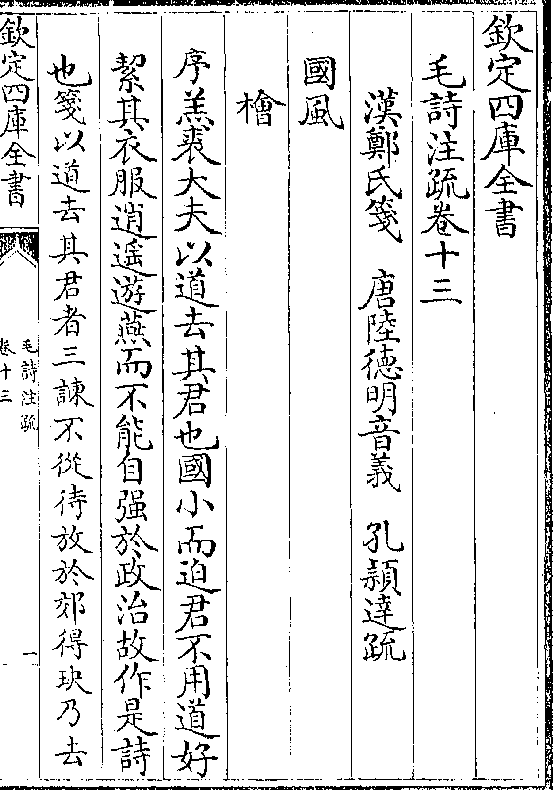 欽定四庫全書
毛詩注疏卷十三
漢鄭氏箋　唐陸德明音義　孔穎達疏
國風
檜
序羔裘大夫以道去其君也國小而迫君不用道好
絜其衣服逍遥遊燕而不能自强於政治故作是詩
也箋以道去其君者三諫不從待放於郊得玦乃去
欽定四庫全書
毛詩注疏
卷十三
一